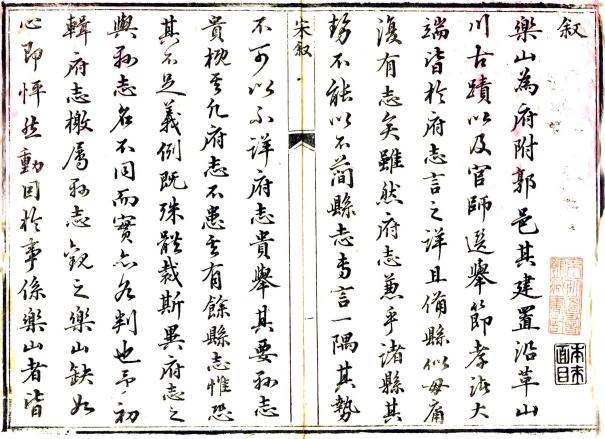 叙
樂山為府附郭邑其建置沿革山
川古蹟以及官師選舉節孝諸大
端皆於府志言之詳且備縣似毋庸
復有志矣雖然府志兼乎諸縣其
勢不能以不簡縣志專言一隅其勢
宋叙
不可以不詳府志貴舉其要縣志
貴概其凡府志不患其有餘縣志惟恐
其不足義例既殊體裁斯異府志之
與縣志名不同而實亦各判也予初
輯府志檄屬縣志觀之樂山缺如
心即怦然動因於事係樂山者皆